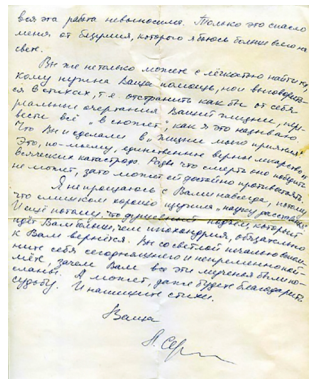 вая эта работа невыносимой. Только это спасло
меня от безумия, которого я боюсь больше всего на
свете.
Вы же не только можете с лёгкостью найти то,
кому нужна Ваша помощь, но и выговорить-
ся в стихах, т.е. отстранить как бы от себя
реальные очертания Вашей жизни, пере-
вести всё "в сюжет", как я это называю
Что Вы и сделали в
Это, по-моему, единственно верное лекарство,
катастроф. Разве что смерть оно победить
не может, зато может ей достойно противостоять.
Я не прощаюсь с Вами навсегда, потому
что слишком хорошо изучила "науку расставанья"
И ещё потому, что душевный подъём, который
идёт Вам больше, чем ипохондрия, обязательно
к Вам вернётся. Вы со светлой печалью вспом-
ните себя сегодняшнего и непременно пой-
мёте, зачем Вам все эти мученья были по-
сланы. А может, даже будете благодарить
судьбу. И напишите стихи.
Ваша